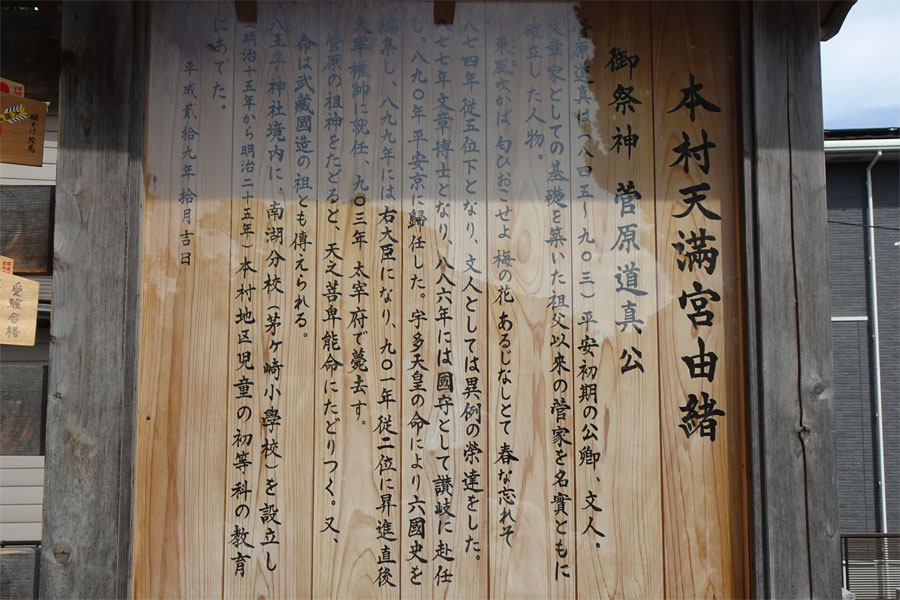 本村天満宮由緒
御祭神 菅原道真公
菅原道真は(八四五~九〇三)平安初期の公卿、文人。
文章家としての基礎を築いた祖父以来の菅家を名實ともに
確立した人物。
東風吹かば 匂ひおこせよ 梅の花 あるじなしとて 春な忘れそ
八七四年従五位下となり、文人としては異例の榮達をした。
八七七年文章博士となり、八八六年には國守として讃岐に赴任
し。八九〇年平安京に歸任した。宇多天皇の命により六國史を
編集し、八九九年には右大臣になり、九〇一年従二位に昇進直後
太宰権帥に就任、九〇三年 太宰府で薨去す。
菅原の祖神をたどると、天之菩卑能命にたどりつく。又、
命は武藏國造の祖とも傳えられる。
八王子神社境内に、南湖分校(茅ヶ崎小學校)を設立し
(明治十五年から明治二十五年)本村地区児童の初等科の教育
にあてた。
平成貳拾九年拾月吉日
受験合格